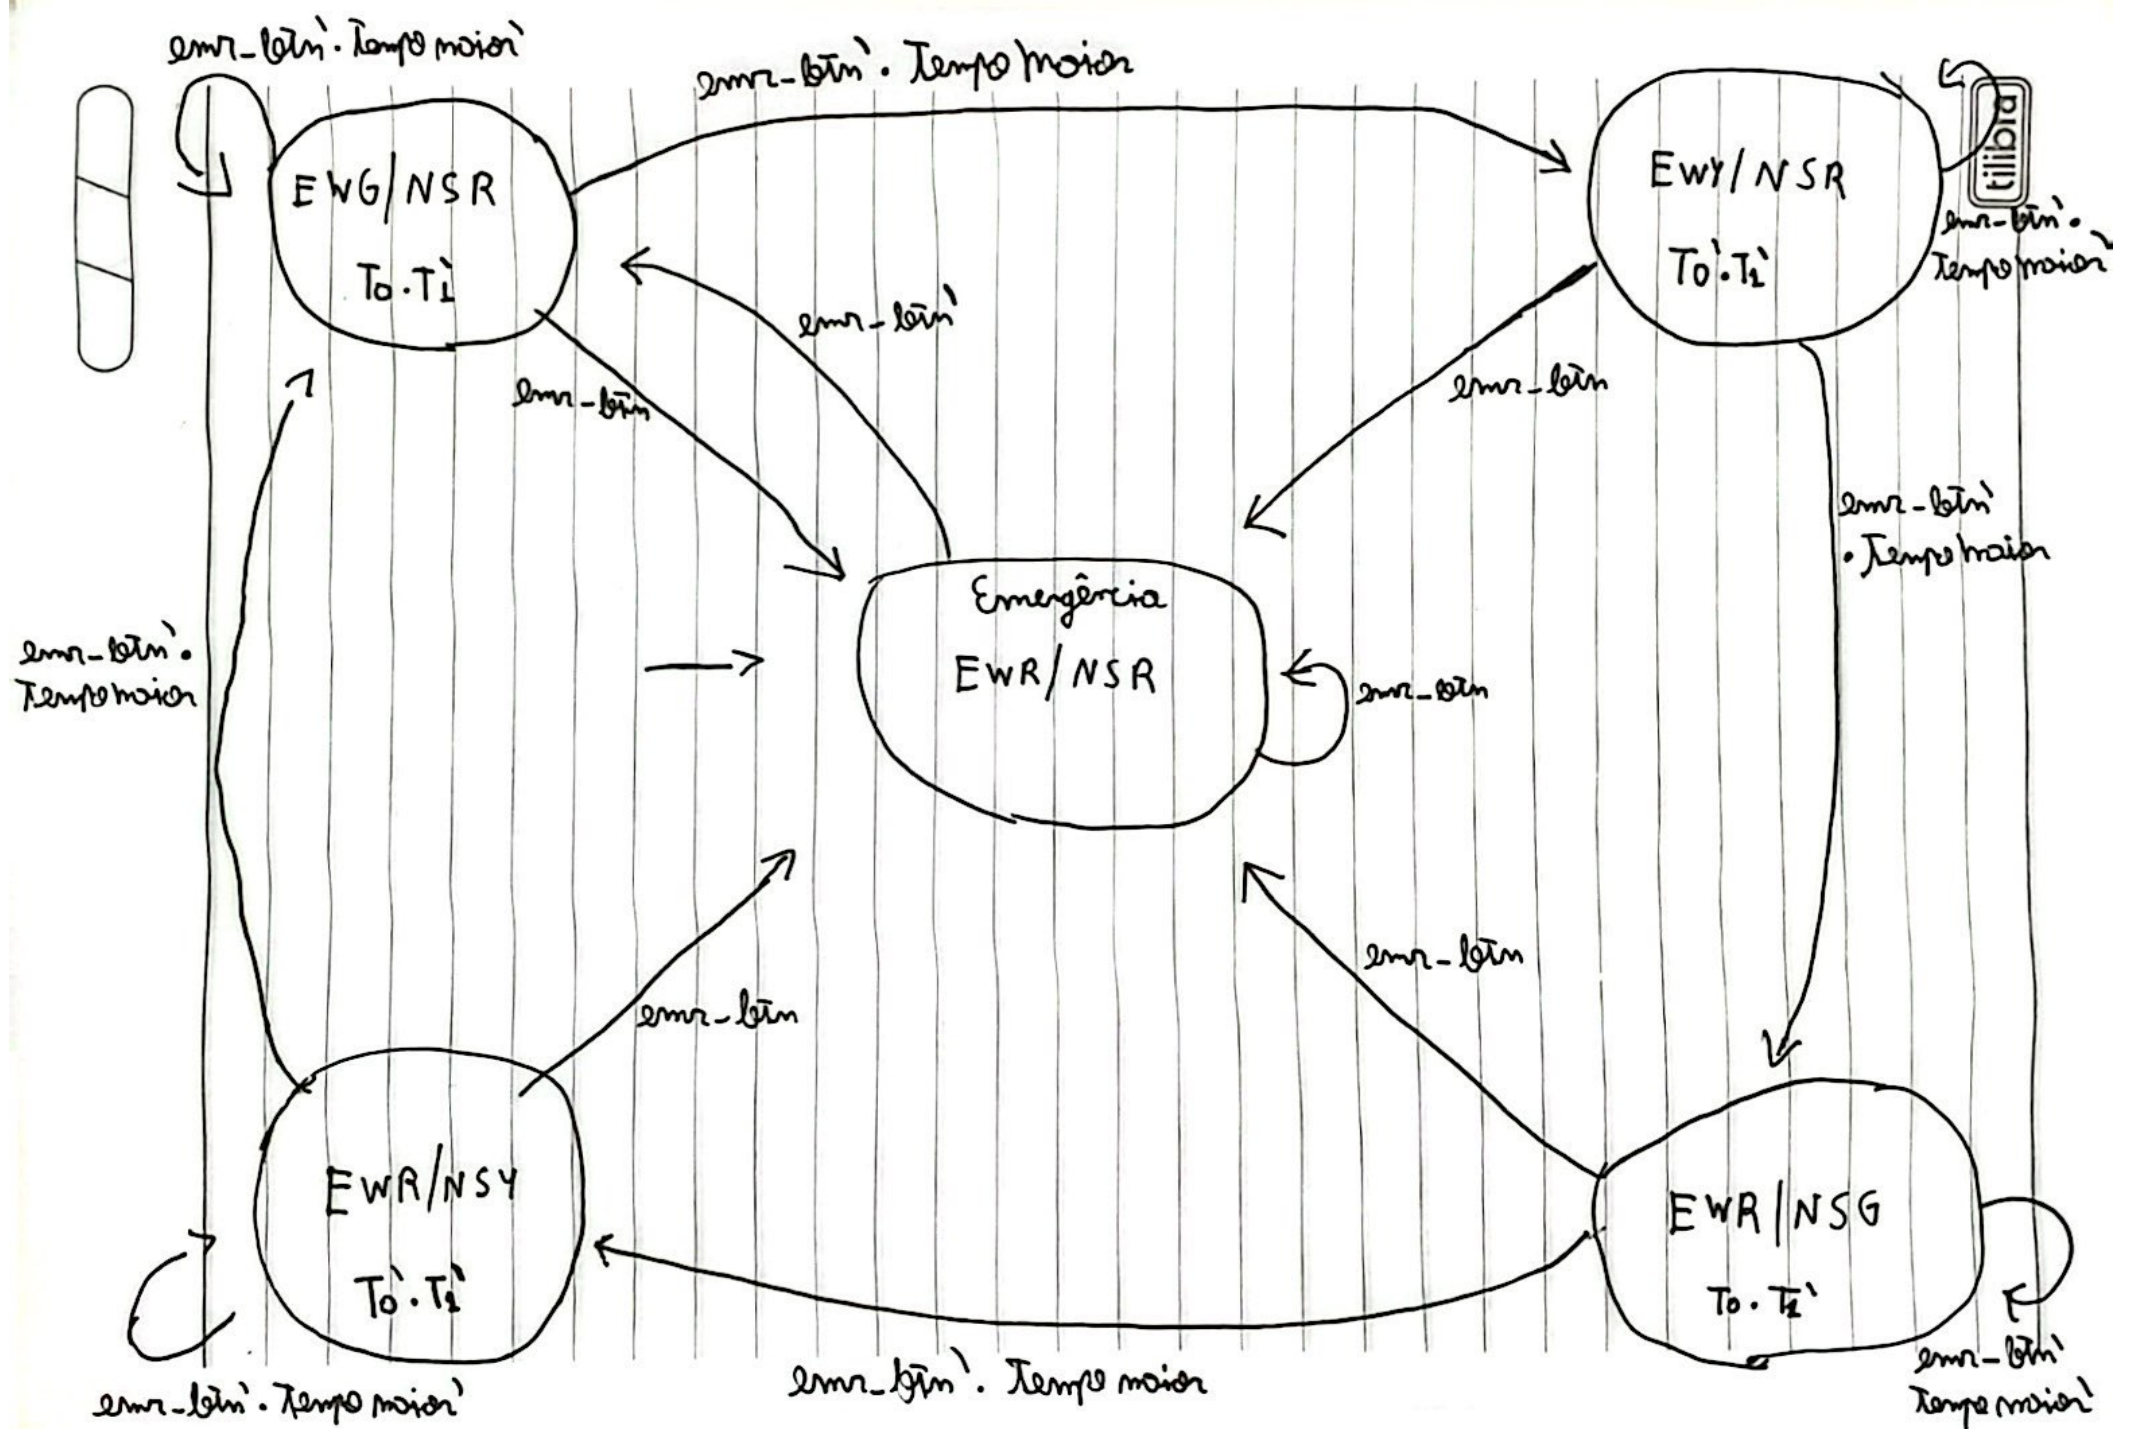 emr-btn'. Tempo maior'
emr-btn'. Tempo Maior
EWG/NSR
To.T1'
EWY/NSR
To'.T1'
tilibra
emr-btn'.
Tempo maior'
emr-btn'
emr-btn
emr-btn
emr-btn'
.Tempo maior
Emergência
EWR/NSR
emr-btn
emr-btn'.
Tempo maior
emr-btn
emr-btn
EWR/NSY
To'.T1'
EWR/NSG
To.T1'
emr-btn'
Tempo maior'
emr-btn'. Tempo maior
emr-btn'. Tempo maior'